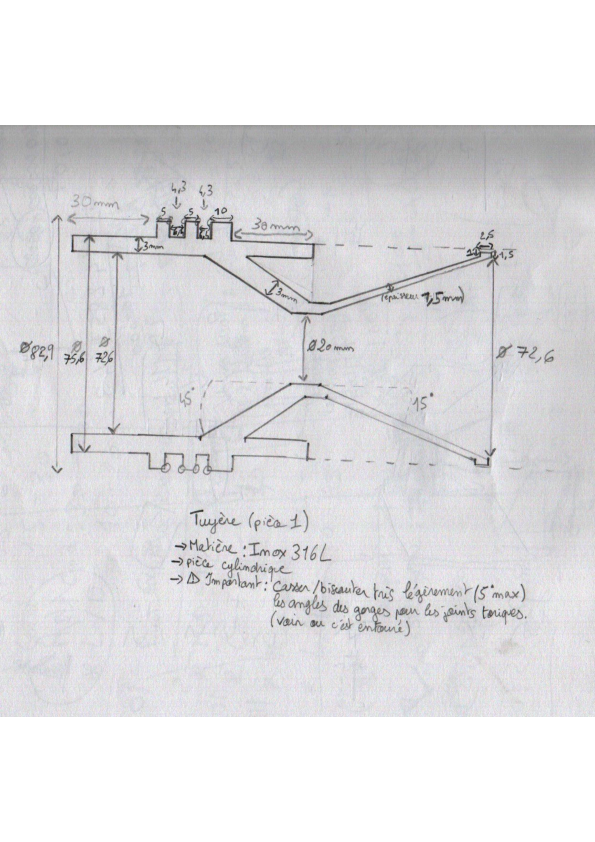 4,3 4,3
30mm 5 5 10 30mm 2,5
3mm 1,5
3mm (épaisseur 1,5mm)
Ø82,9 Ø75,6 Ø72,6 Ø20mm Ø 72,6
45° 15°
Tuyère (pièce 1)
→ Matière : Inox 316L
→ pièce cylindrique
→ ⚠ Important : Casser/biseauter très légèrement (5° max)
les angles des gorges pour les joints toriques.
(voir ou c'est entouré)